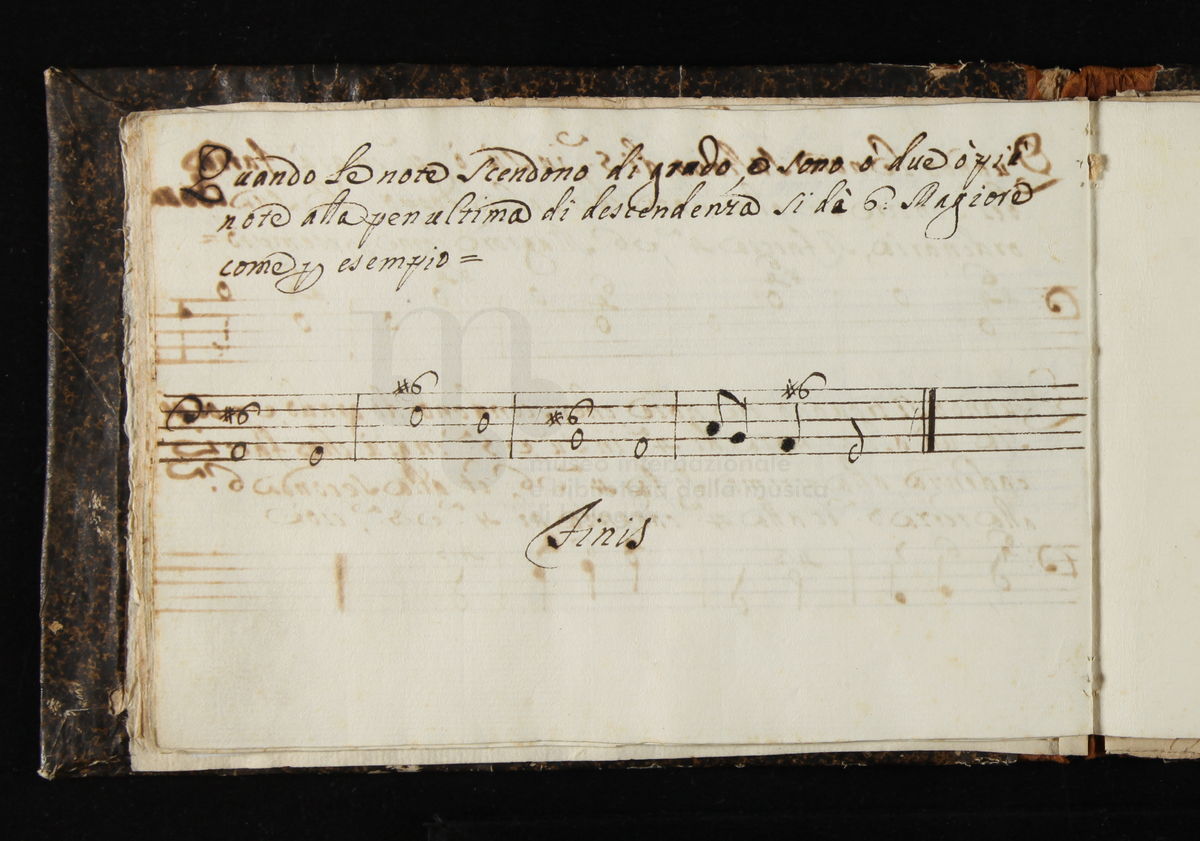 Quando le note scendono di grado, e sono ò due ò più
note alla penultima di descendenza si dà 6.ª Magiore
come p esempio =
#6 #6 #6 #6
museo internazionale
e biblioteca della musica
Finis